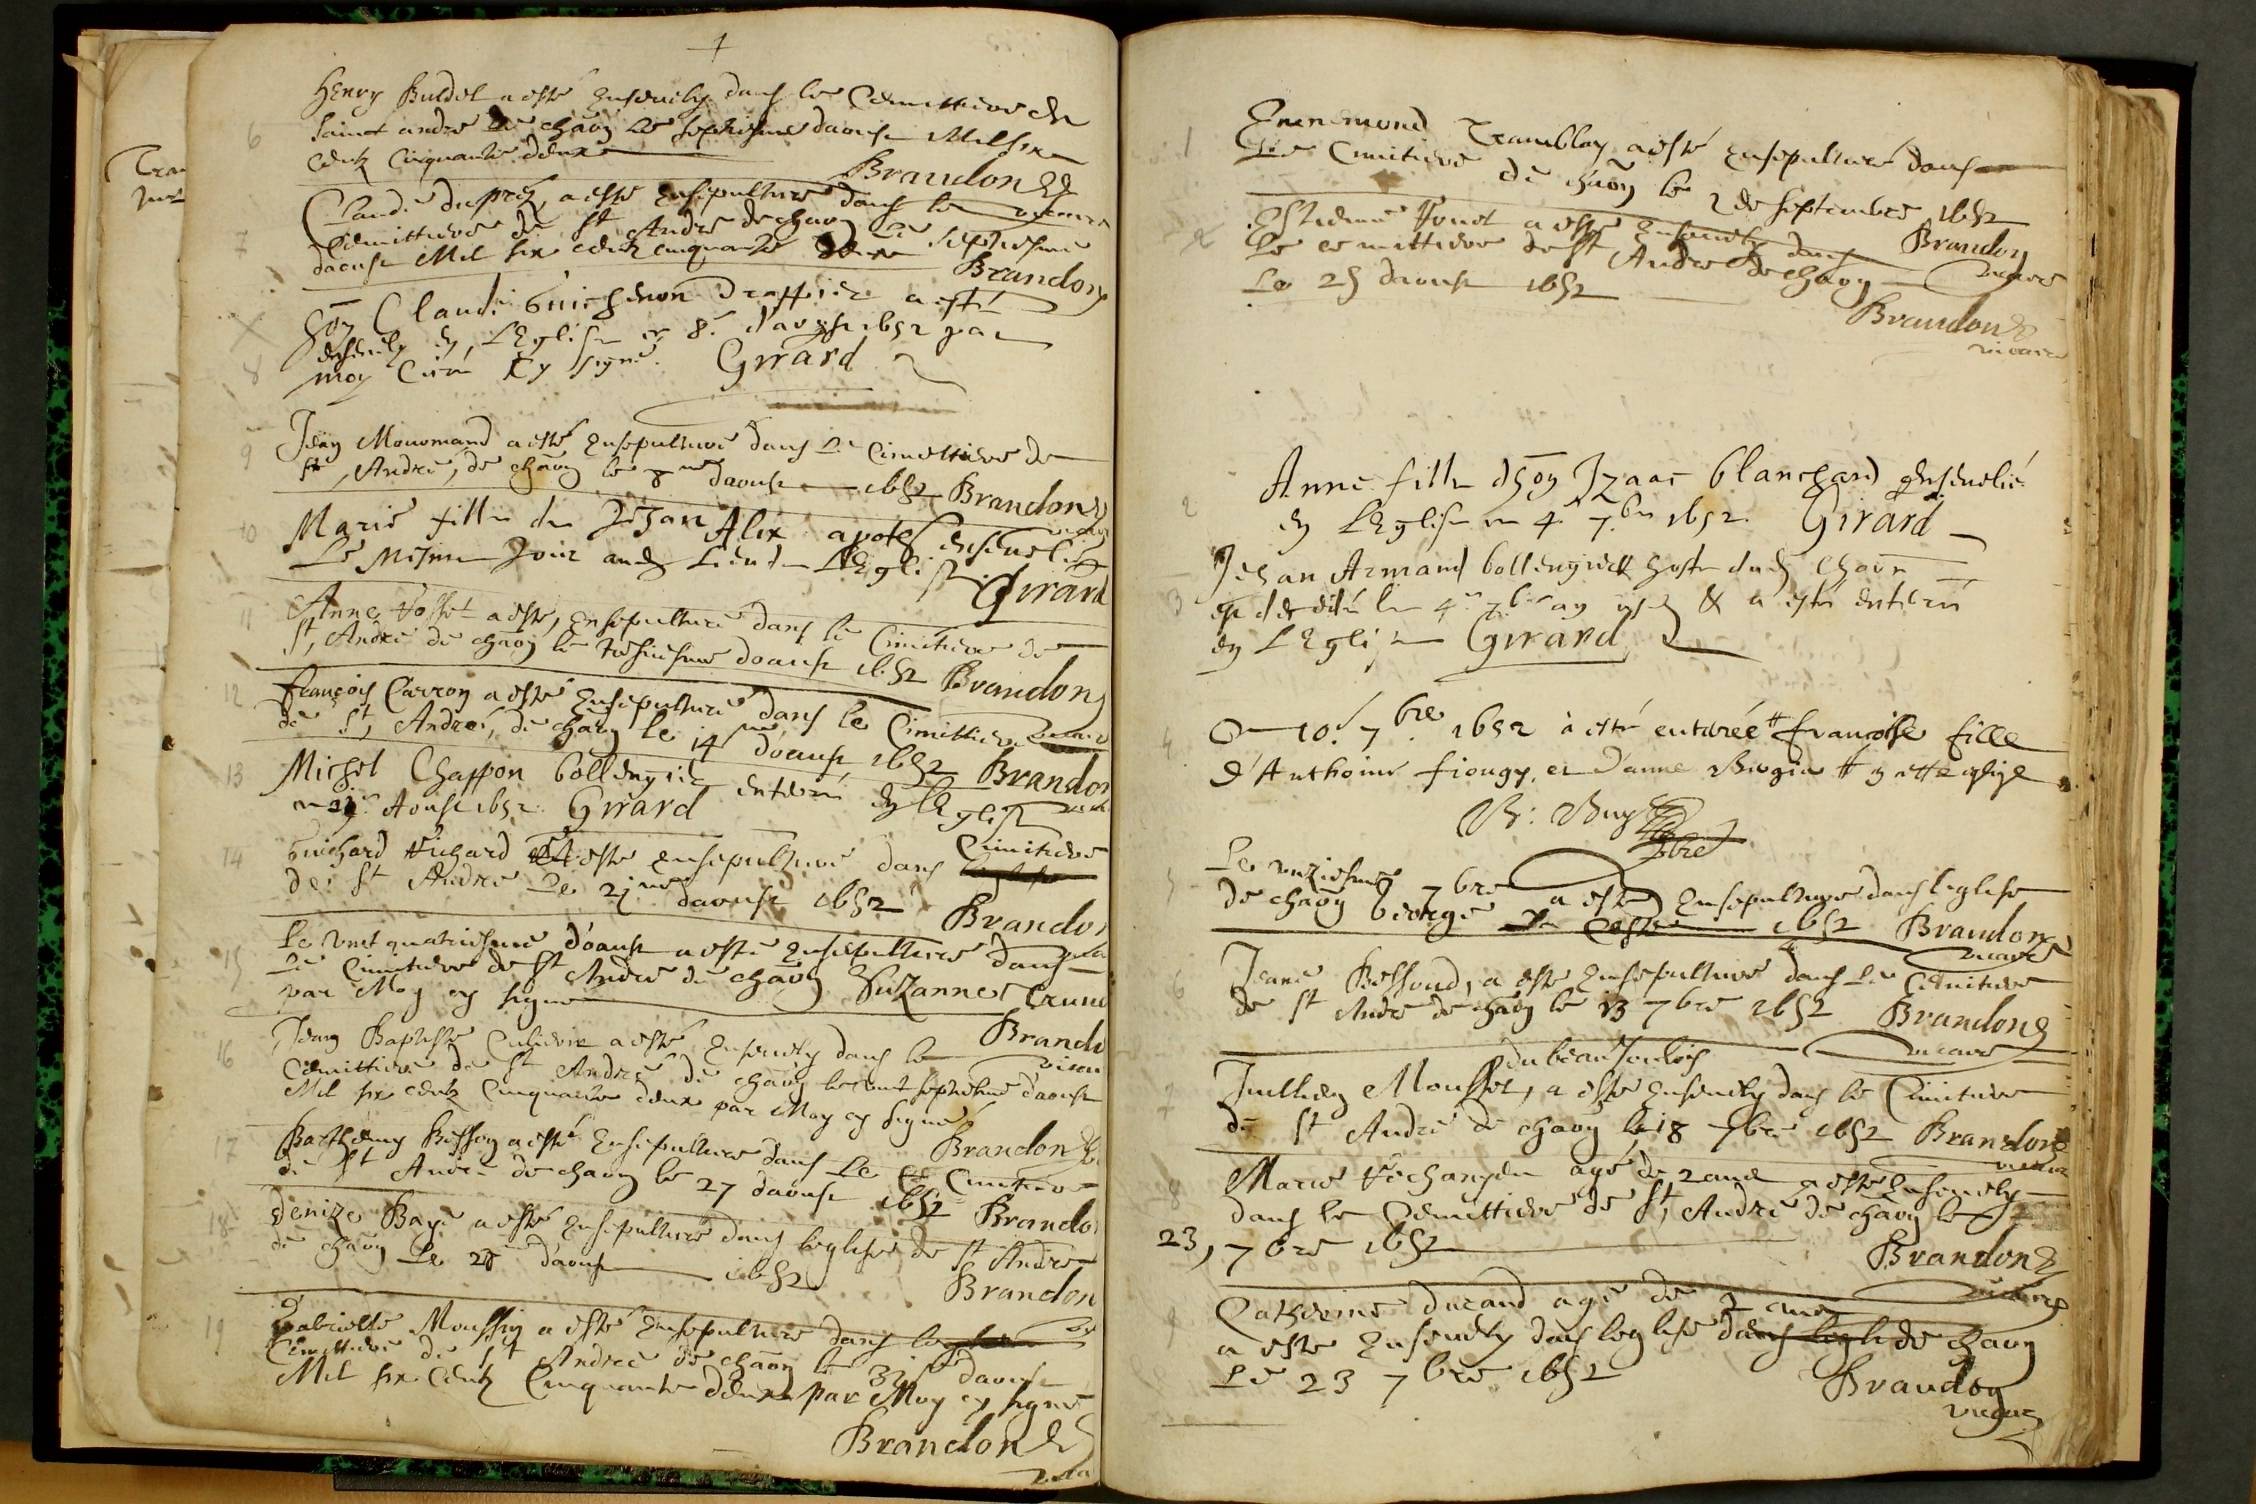 Henry Buldel a esté ensevely dans le Cemittiere de
6 Sainct andré de chãoy le septiesme daoust Mil six
centz cinquante deux
Brandon
Claude duprez, a esté ensepulturé dans le vicaire
7 Cemittiere de St André de chaoy le septiesme
daoust Mil six centz cinquante deux
Brandon
hon Claude Guichenon drappier a esté
ensevely en l'Eglise ce 8e d'aougst 1652 par
8 moy Curé Cy signé. Girard
9 Jean Monomand a esté ensepulturé dans le Cimettiere de
St, André, de chãoy le 8me daoust 1652 Brandon
10 Marie fille de Jehan Alix apotes ensevelie
Le mesme Jour aud Lieu de l'Eglise. Girard
11 Anne a esté, ensepulturé dans le Cimitiere de
St, André de chãoy le tresiesme daoust 1652 Brandon
12 françois Carron a esté ensepulturé dans le Cimittiere
de St, André, de chãoy le 14me daoust 1652 Brandon
13 Michel Chappon bollengier enterré en l'Eglise
Aoust 1652. Girard
14 Guichard Vichard a esté ensepulturé dans Cimitiere
de St André le 21me daoust 1652
Brandon
15 Le vint quatriesme d'aoust a esté ensepulturé dans
le Cimitiere de St André de chãoy Suzanne
par Moy cy signé
Brandon
16 Jean Baptiste a esté ensevely dans le
Cemittiere de St André de chãoy le vint septiesme d'aoust
Mil six centz Cinquante deux par Moy cy signé
Brandon
17 Barthelemy Besson a esté ensepulturé dans Le Cimitiere
de St André de chãoy le 27 daoust 1652 Brandon
18 denize Bagé a esté ensepulturé dans leglise de St André
de chãoy Le 28 daoust 1652
Brandon
19 Gabrielle Moussin a esté ensepulturé dans
Cimittiere de St André de chãoy le 31 daoust
Mil six centz Cinquante deux par Moy cy signé
Brandon
1 Ennemond Tramblay a esté ensepulturé dans
Le Cimitiere de chãoy le 2 de septembre 1652
Brandon
vicaire
2 Estienne a esté ensevely dans
le cemittiere de St André de chãoy
Le 25 daoust 1652
Brandon
vicaire
2 Anne fille d'hon Izaac blanchard ensevelie
en l'Eglise ce 4e 7bre 1652. Girard
Jehan Armand bollengier & hoste dud Chaon
3 est decedé le 4e 7bre & a esté enterré
en l'Eglise Girard
4 Ce 10e 7bre 1652 à esté enterée françoise fille
d'Anthoine fiougy, et d'anne
5 Le unziesme 7bre a esté ensepulturé dans leglise
de chãoy George de 1652 Brandon
vicaire
6 Jeane Bessond, a esté ensepulturé dans Le Cemitiere
de St André de chãoy le 13 7bre 1652 Brandon
vicaire
du beaujoulois
7 Jullien Mousset, a esté ensevely dans le Cimitiere
de St André de chaoy le 18 7bre 1652 Brandon
vicaire
8 Marie agé de 2 ans a esté ensevely
dans le Cemittiere de St, André de chãoy le
23, 7bre 1652
Brandon
vicaire
9 Catherine durand agé de 2 ans
a esté ensevely dans leglise de chaoy
Le 23 7bre 1652
Brandon
vicaire